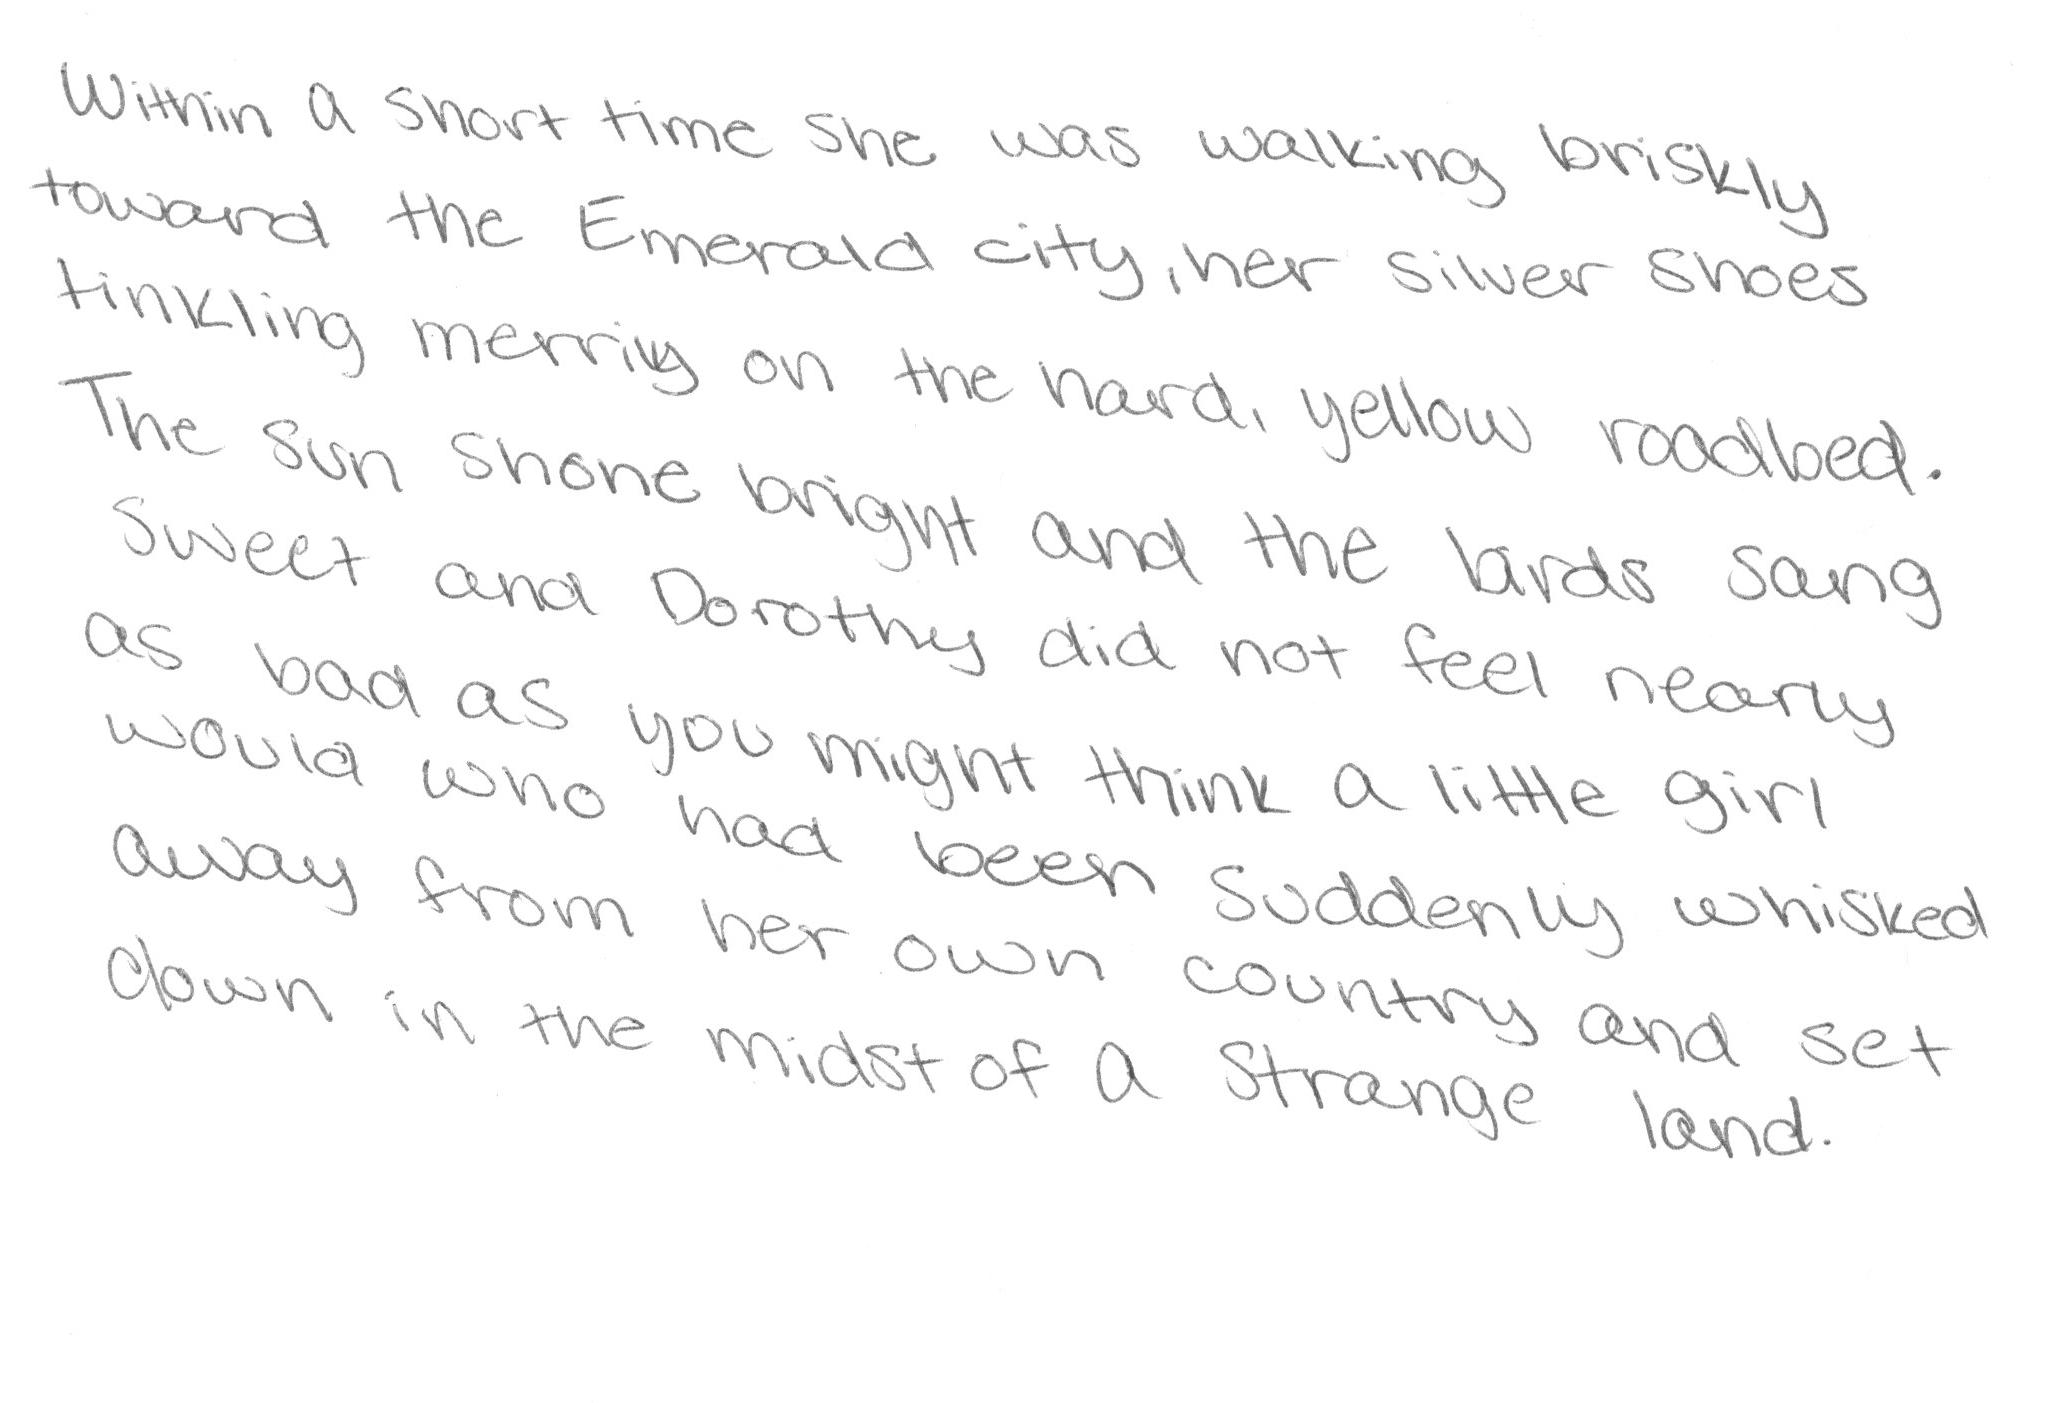 Within a short time she was walking briskly
toward the Emerald city, her silver shoes
tinkling merrily on the hard, yellow roadbed.
The sun shone bright and the birds sang
sweet and Dorothy did not feel nearly
as bad as you might think a little girl
would who had been suddenly whisked
away from her own country and set
down in the midst of a strange land.